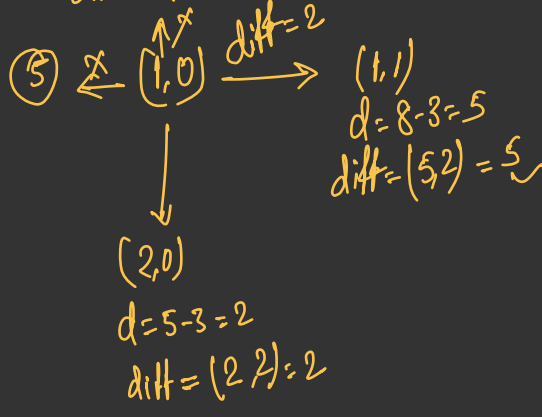 ⑤ x (1,0) x diff=2
(1,1)
d=8-3=5
diff=(5,2)=5
(2,0)
d=5-3=2
diff=(2,2)=2